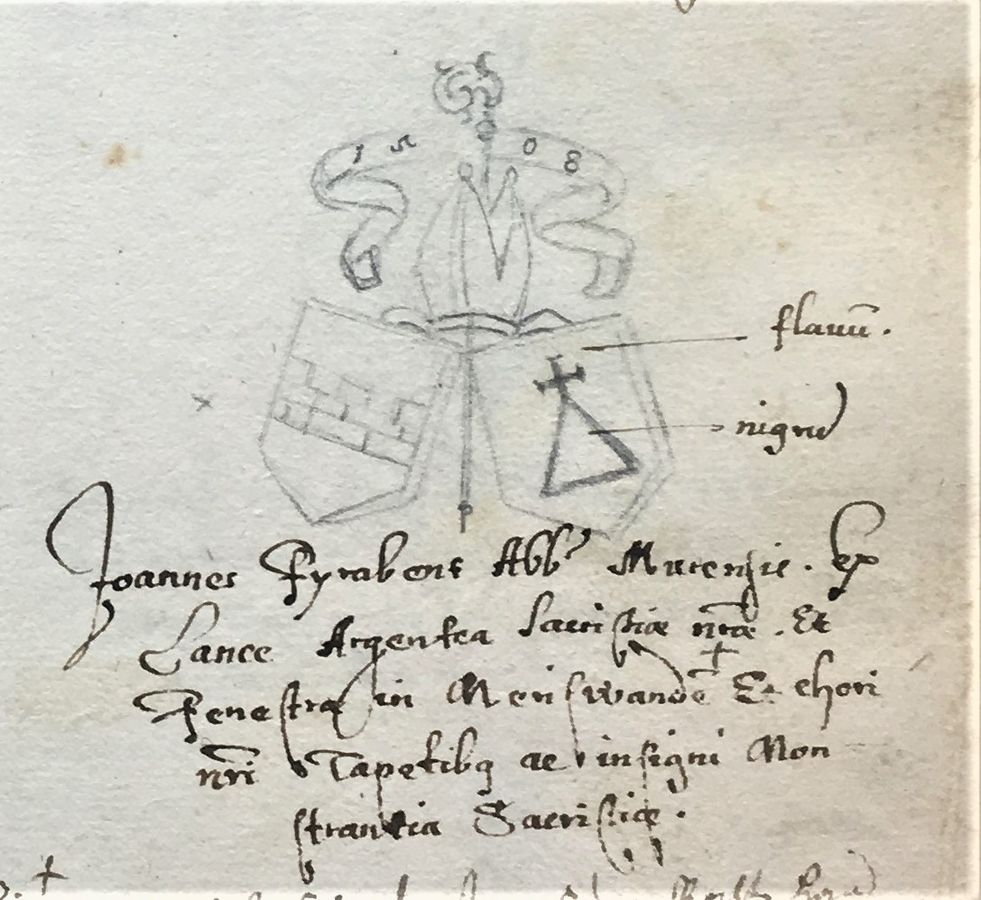 15 08
flavū.
nigrū
Joannes Fyrabent Abb⁹ Murensis. Ex
Lance Argentea Sacristiæ nr̄æ. Et
Fenestra in Meriswandē Et chori
nr̄i Tapetibq ac insigni Mon
strantia Sacristiæ.